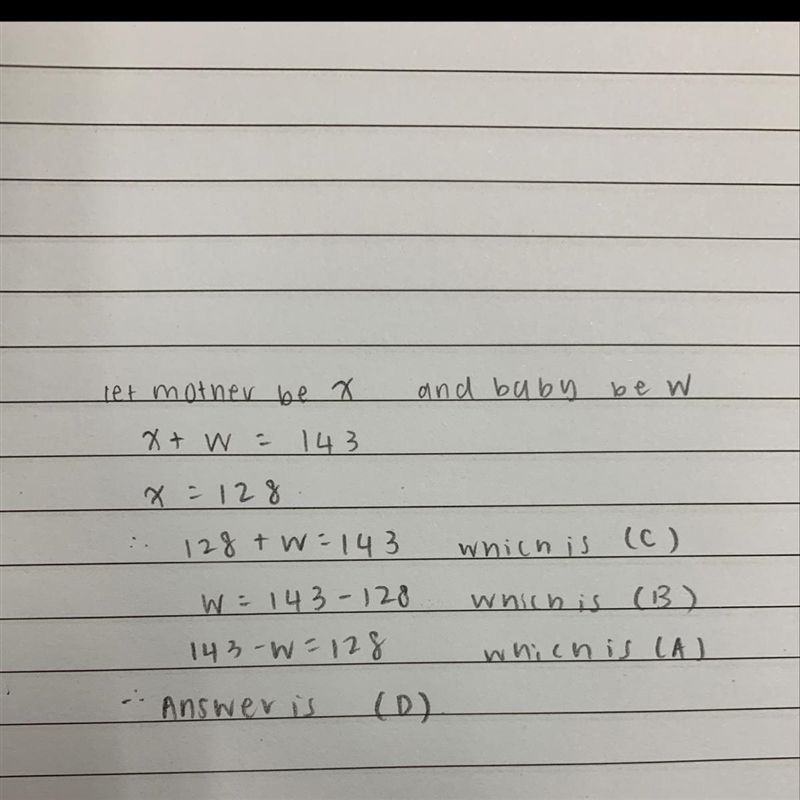 let mother be x and baby be W
x + W = 143
x = 128
∴ 128 + W = 143 which is (C)
W = 143 - 128 which is (B)
143 - W = 128 which is (A)
∴ Answer is (D)